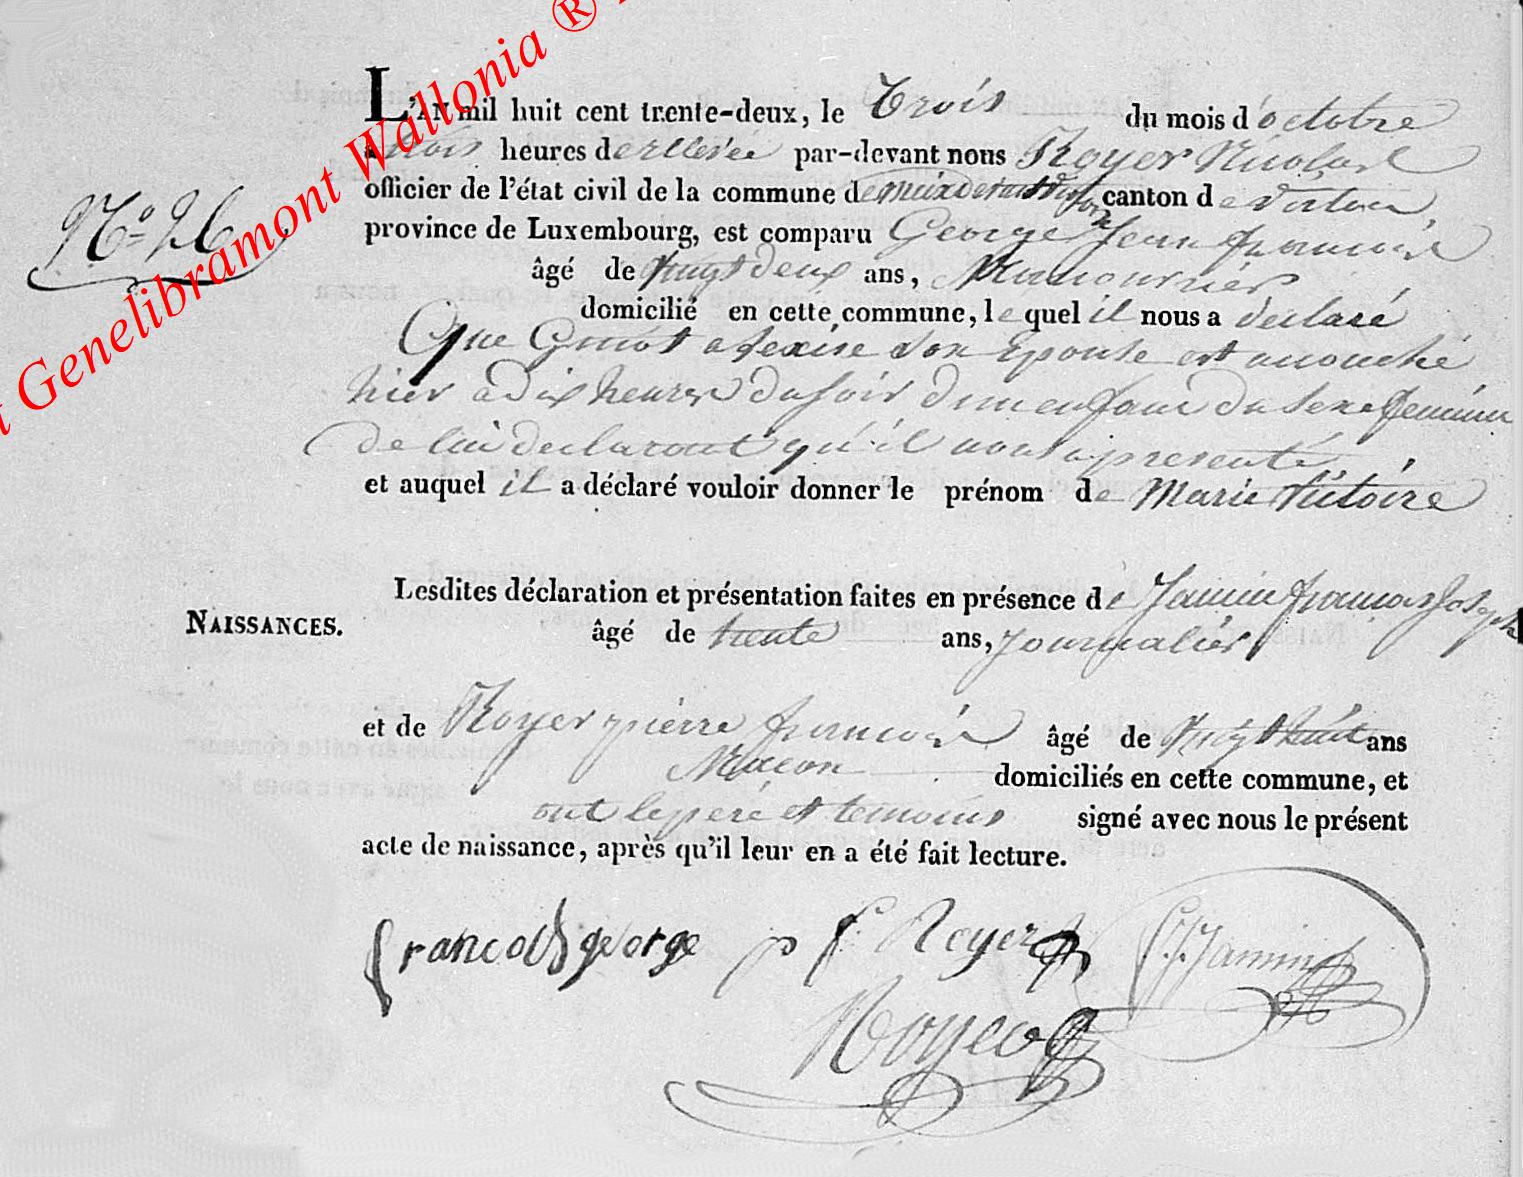 Genelibramont Wallonia ®
L'AN mil huit cent trente-deux, le Trois du mois d'octobre
a trois heures de relevée par-devant nous Royer Nicolas
officier de l'état civil de la commune de meix devant virton canton de virton,
province de Luxembourg, est comparu George Jean françois
âgé de vingt deux ans, Manouvrier
N° 26
domicilié en cette commune, le quel il nous a declaré
Que Guiot son Epouse est accouché
hier a dix heures du soir d'un enfant du sexe feminin
de lui declarant qu'il nous a presenté,
et auquel il a déclaré vouloir donner le prénom de Marie victoire
Lesdites déclaration et présentation faites en présence de Jamin françois Joseph
NAISSANCES.
âgé de trente ans, Journalier
et de Royer pierre françois âgé de vingt huit ans
Macon domiciliés en cette commune, et
ont le pere et temoins signé avec nous le présent
acte de naissance, après qu'il leur en a été fait lecture.
francois george p f Royer f. J. Jamin
Royer